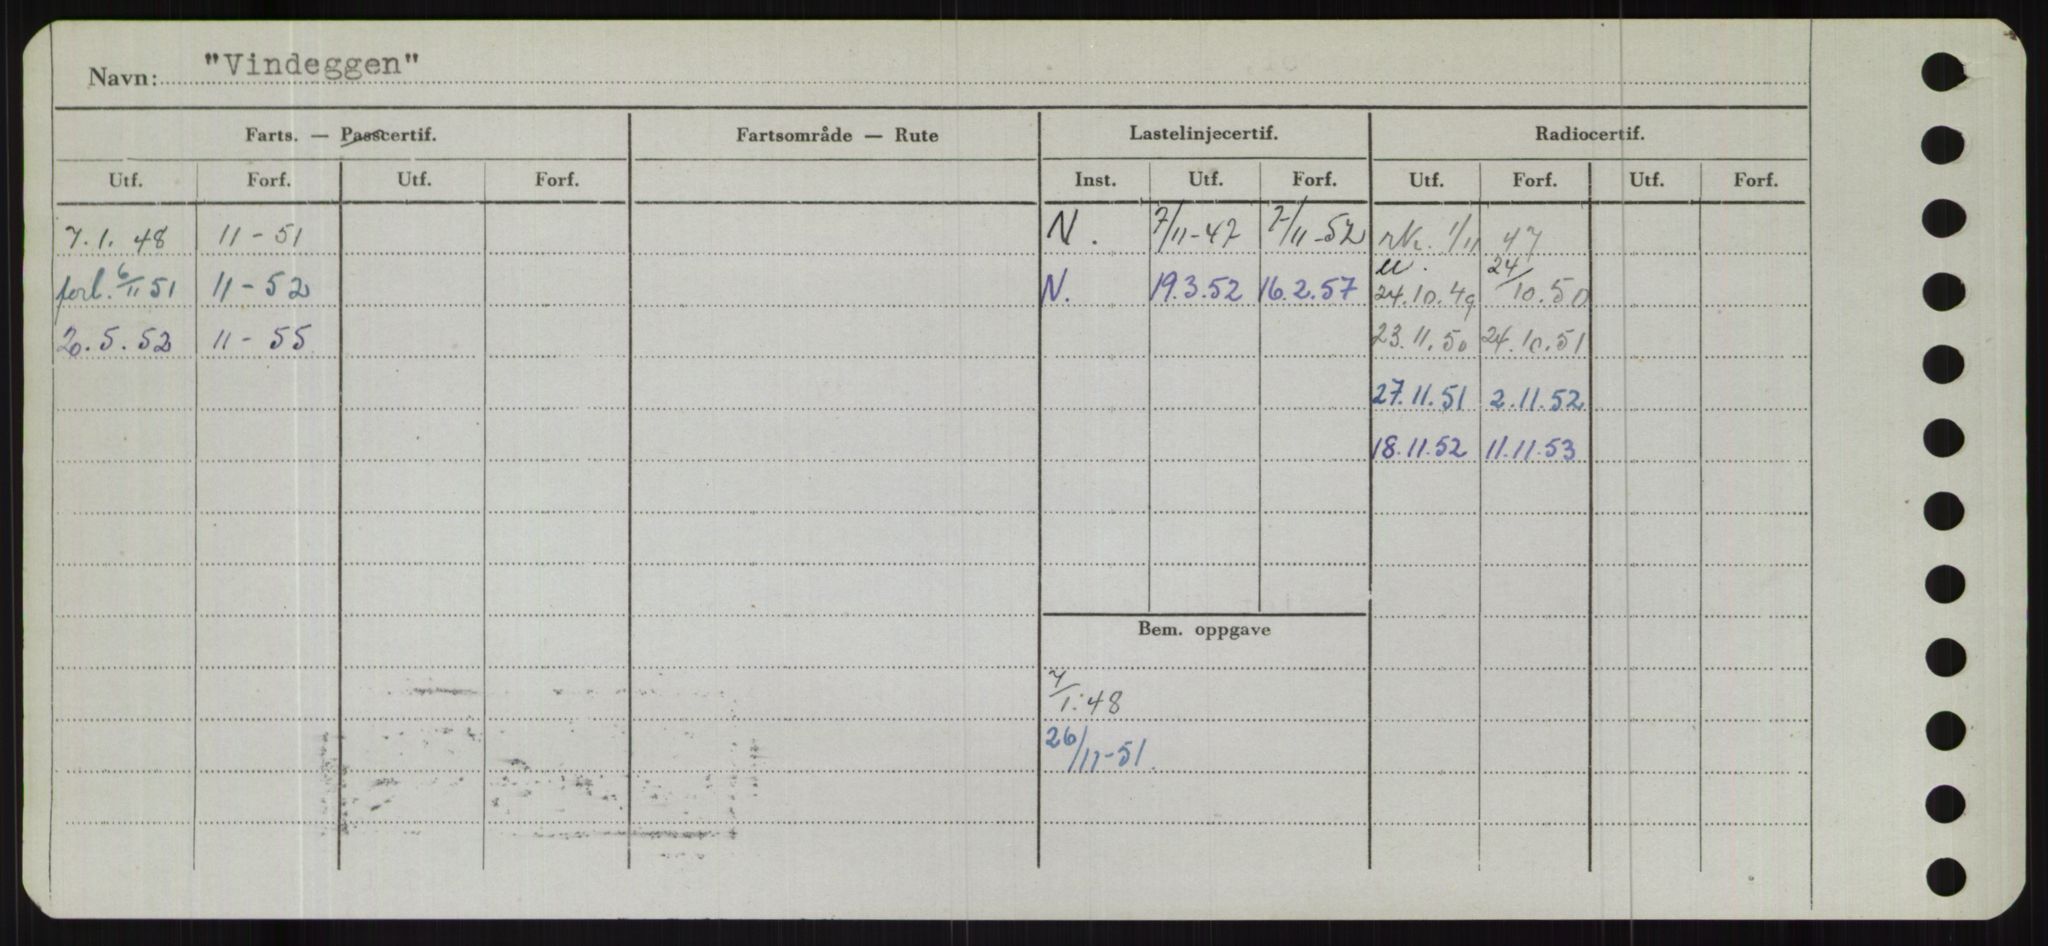 Navn: "Vindeggen"
Farts. — Passcertif. Fartsområde — Rute Lastelinjecertif. Radiocertif.
Utf. Forf. Utf. Forf. Inst. Utf. Forf. Utf. Forf. Utf. Forf.
7.1. 48 11 - 51 N. 7/11-47 7/11-52 1/11 47
forl. 6/11 51 11 - 52 N. 19.3.52 16.2.57 24.10.49 24/10.50
20.5.52 11 - 55 23.11.50 24.10.51
27.11.51 2.11.52
18.11.52 11.11.53
Bem. oppgave
7/1.48
26/11-51.